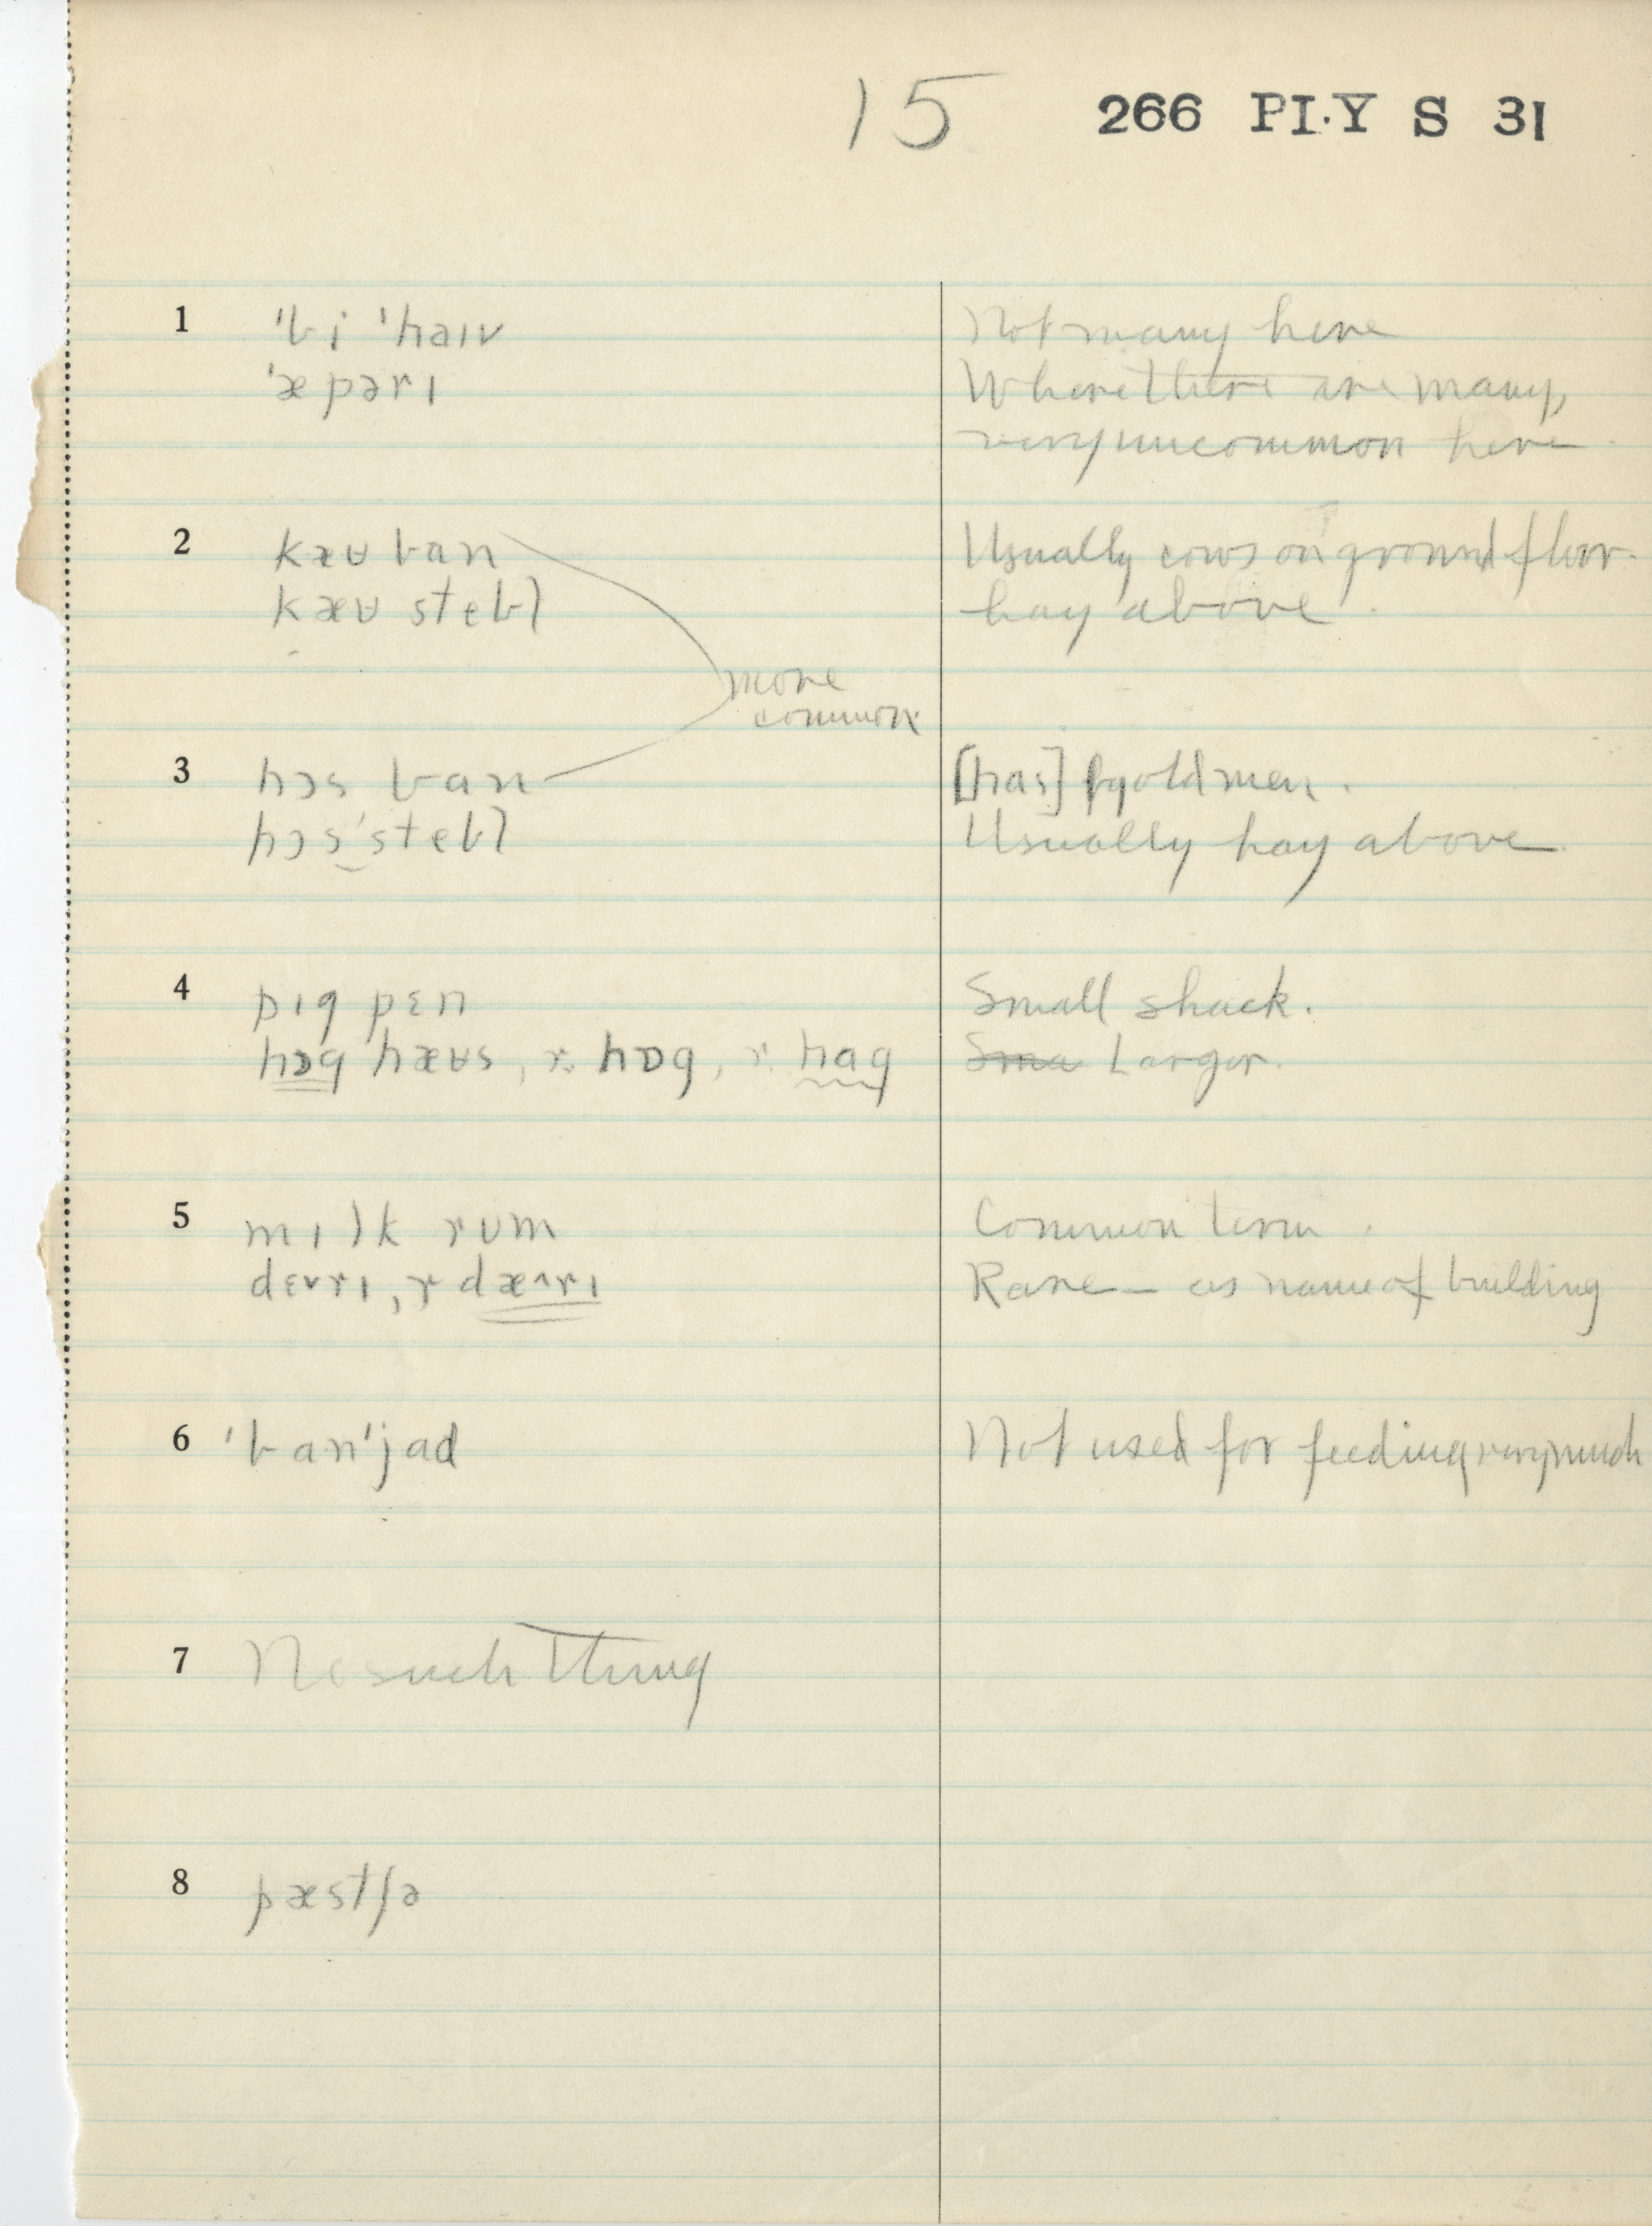 15 266 PI.Y S 31
1 ˈbi ˈhaɪv Not many here
ˈæpərɪ Where there are many,
very uncommon here.
2 kæʉ ban Usually cows on ground floor.
kæʉ stebl hay above.
more
common
3 hɔs ban [has] by old men.
hɔsˈstebl Usually hay above.
4 pɪg pɛn Small shack.
hɔg hæʉs, r. hɒg, r. hag Sma Larger.
5 mɪlk rʊm Common term.
dɛʌrɪ, r dæʌrɪ Rare — as name of building
6 ˈbanˈjad Not used for feeding very much
7 No such thing
8 pæstʃə